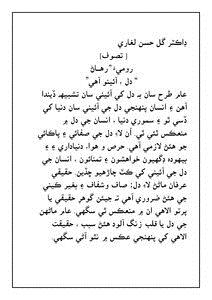 ڊاڪٽر گل حسن لغاري
( تصوف )
رومي؛ "رهاڻ
" دل ، آئينو آهي"
عام طرح سان بہ دل کي آئيني سان تشبيهہ ڏيندا
آهن ۽ انسان پنهنجي دل جي آئيني سان دنيا کي
ڏسي ٿو ۽ سموري دنيا ، انسان جي دل ۾
منعڪس ٿئي ٿي. ان لاءِ دل جي صفائي ۽ پاڪائي
جو هئڻ لازمي آهي. حرص ۽ هوا، دنياداري ۽
بيهوده ڊگهيون خواهشون ۽ تمنائون ، انسان جي
دل جي آئيني کي ڪٽ چاڙهيو ڇڏين. حقيقي
عرفان ماڻڻ لاءِ دل؛ صاف وشفاف ۽ بغير ڪيني
جي هئڻ ضروري آهي تہ جيئن گوهر حقيقي يا
پرتو الاهي ان ۾ منعڪس ٿي سگهي. عام ماڻهن
جي دل يا قلب زنگ آلود هئڻ سبب ، حقيقت
الاهي کي پنهنجي عڪس ۾ نٿو آڻي سگهي.